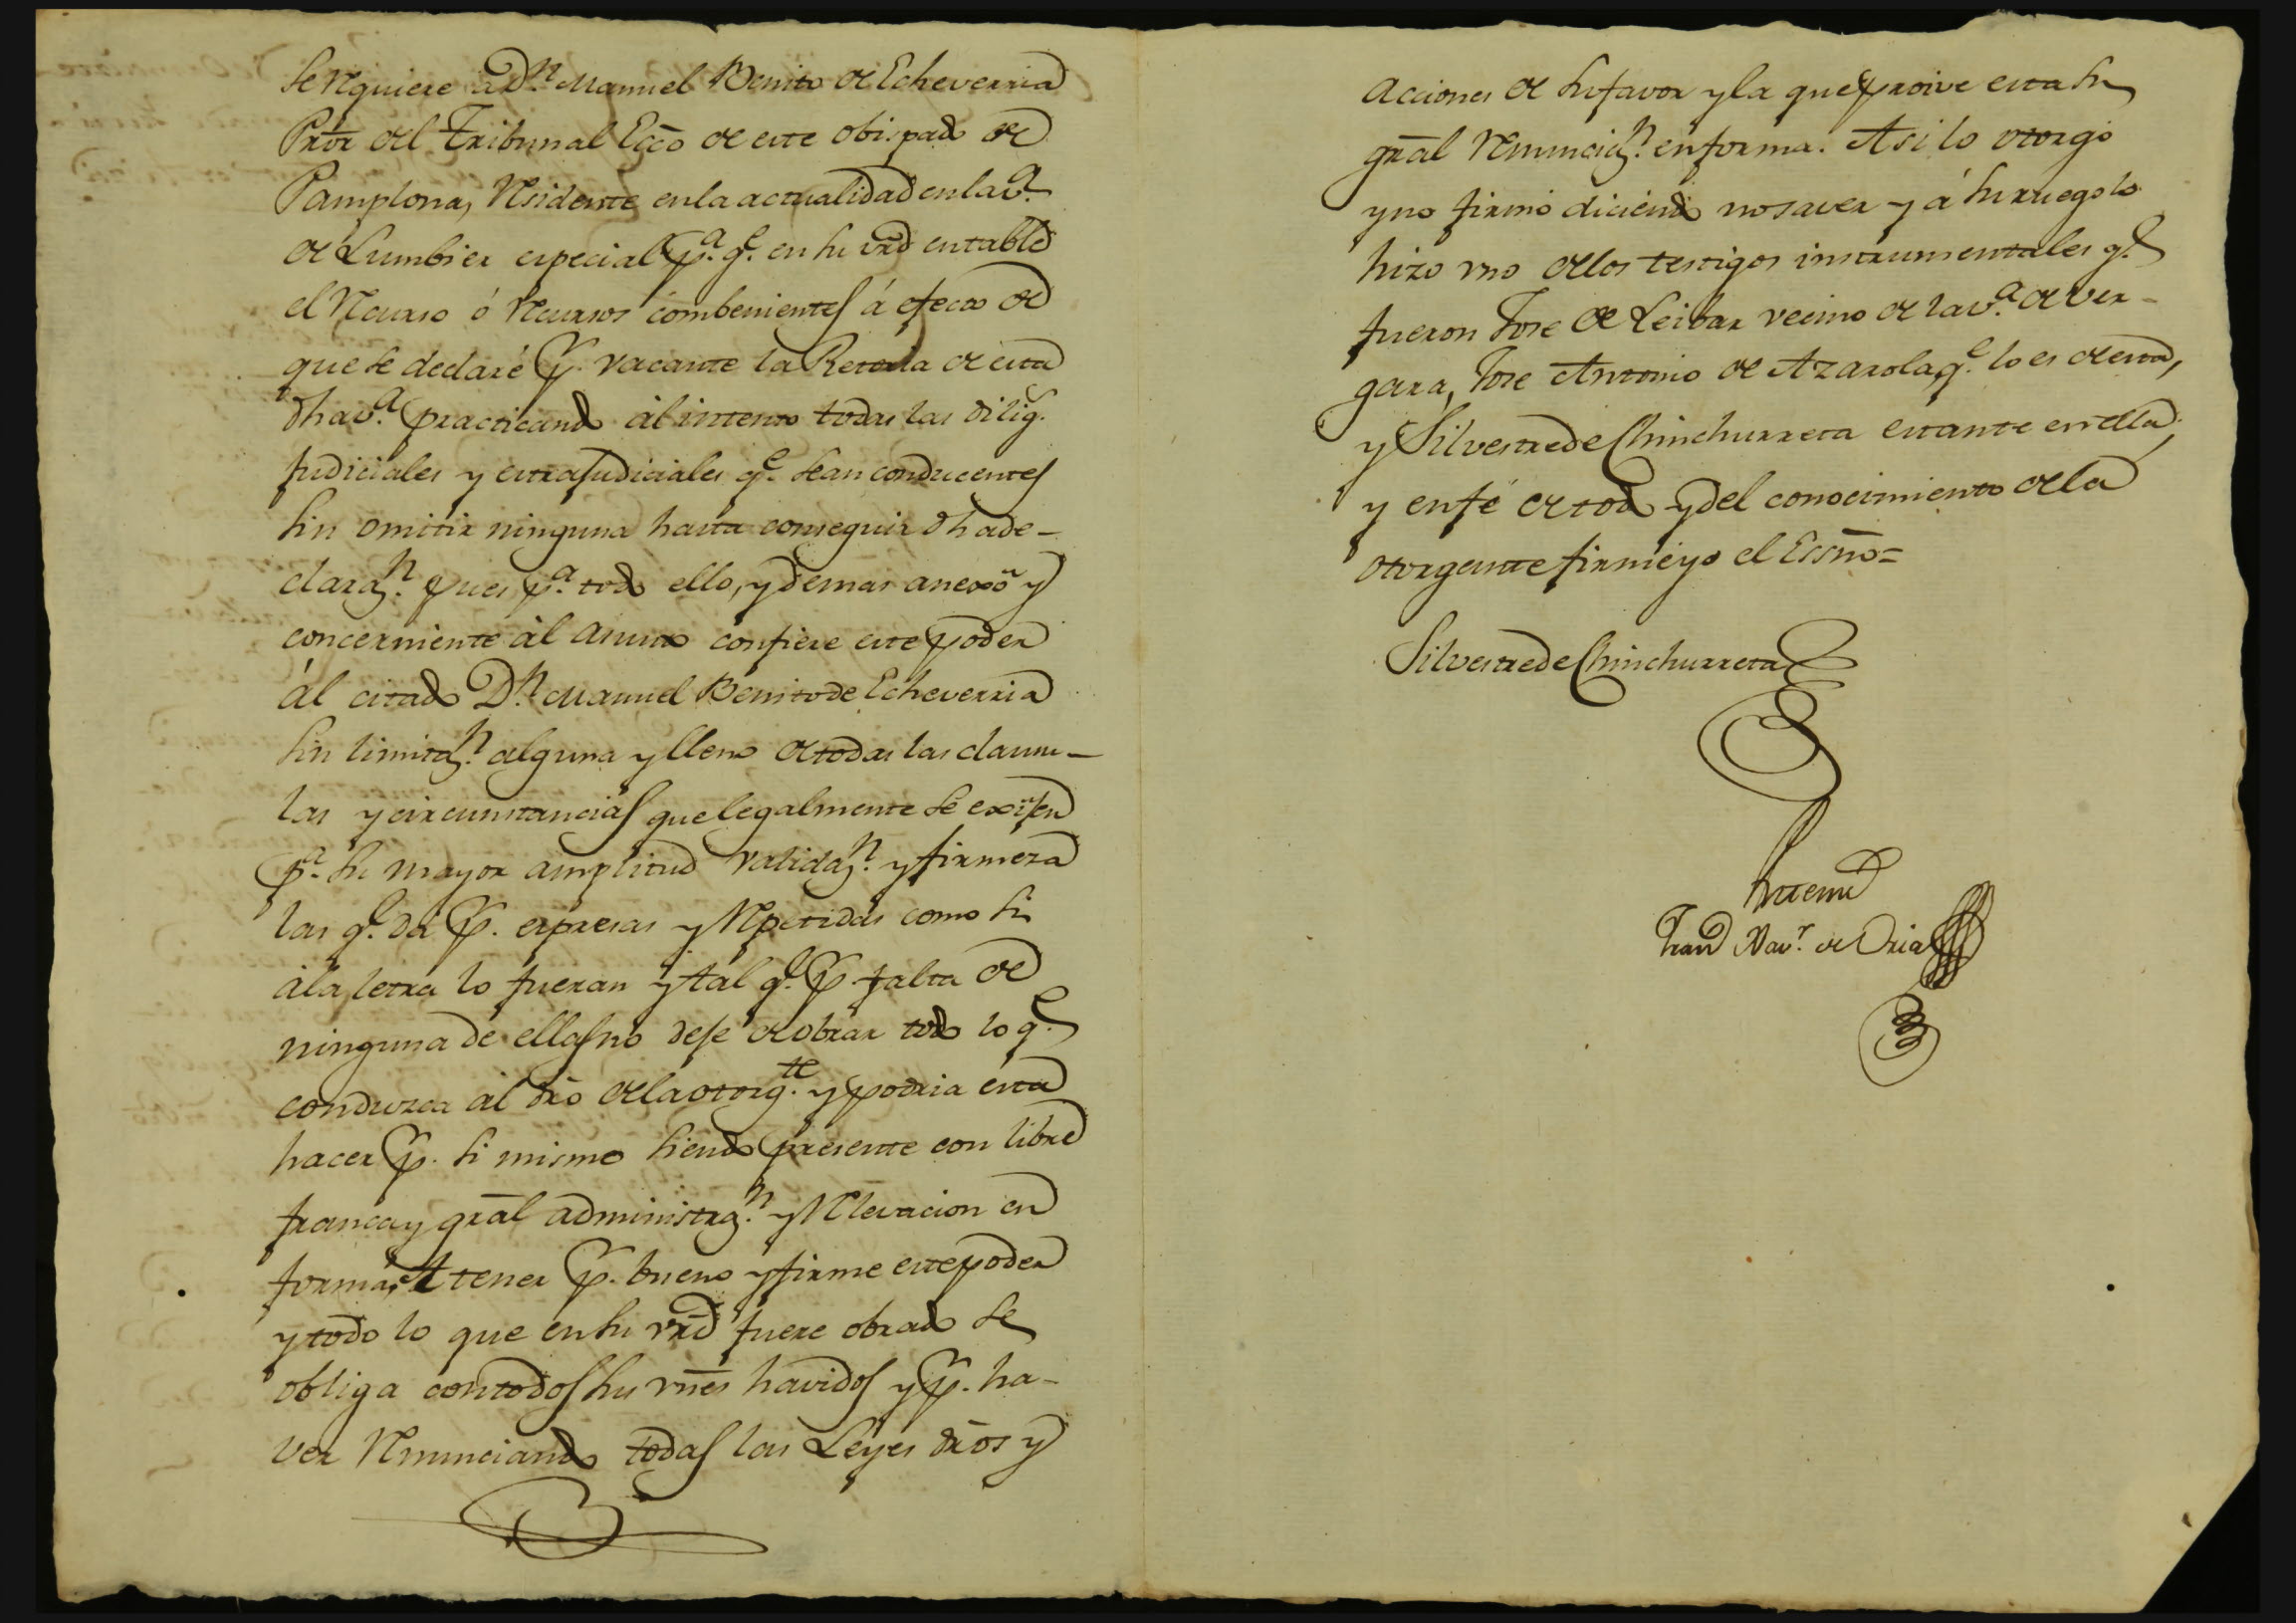 se requiere à Dn. Manuel Benito de Echeverria
Pror. del Tribunal Ecco de este obispado de
Pamplona, residente en la actualidad en la va.
de Lumbier especial pa. qe. en su vrd entable
el recurso ó recursos combenientes á efecto de
que se declare pr. vacante la Retoria de esta
dha va. practicando àl intento todas las dilig.s
Judiciales y extrajudiciales qe. sean conducentes
sin omitir ninguna hasta conseguir dha de-
clarazn. pues pa. todo ello, y demas anexo y
concerniente àl asunto confiere este poder
àl citado Dn. Manuel Benito de Echeverria
sin limitazn. alguna y lleno de todas las clausu-
las y circunstancias que legalmente se exijen
pa. su mayor amplitud validazn. y firmeza
las qe. dá pr. expresas y repetidas como si
à la letra lo fueran y tal qe. pr. falta de
ninguna de ellas no deje de obrar todo lo qe.
conduzca àl dro de la otorgte. y podria esta
hacer pr. si mismo siendo presente con libre
franca y gral administrazn. y relevacion en
forma, A tener pr. bueno y firme este poder
y todo lo que en su vrd fuere obrado se
obliga con todos sus vnes havidos y pr. ha-
ver renunciando todas las Leyes dros y
acciones de su favor y la que proive esta su
gral renunciazn. en forma. Asi lo otorgó
y no firmó diciendo no saver y á su ruego lo
hizo vno de los testigos instrumentales qe.
fueron Jose de Leibar vecino de la va. de Ver-
gara, Jose Antonio de Azarola, qe. lo es de esta,
y Silvestre de Chinchurreta estante en ella,
y en fé de todo y del conocimiento de la
otorgante firmé yo el Essno=
Silvestre de Chinchurreta
Antemi
Xavr. de Oria